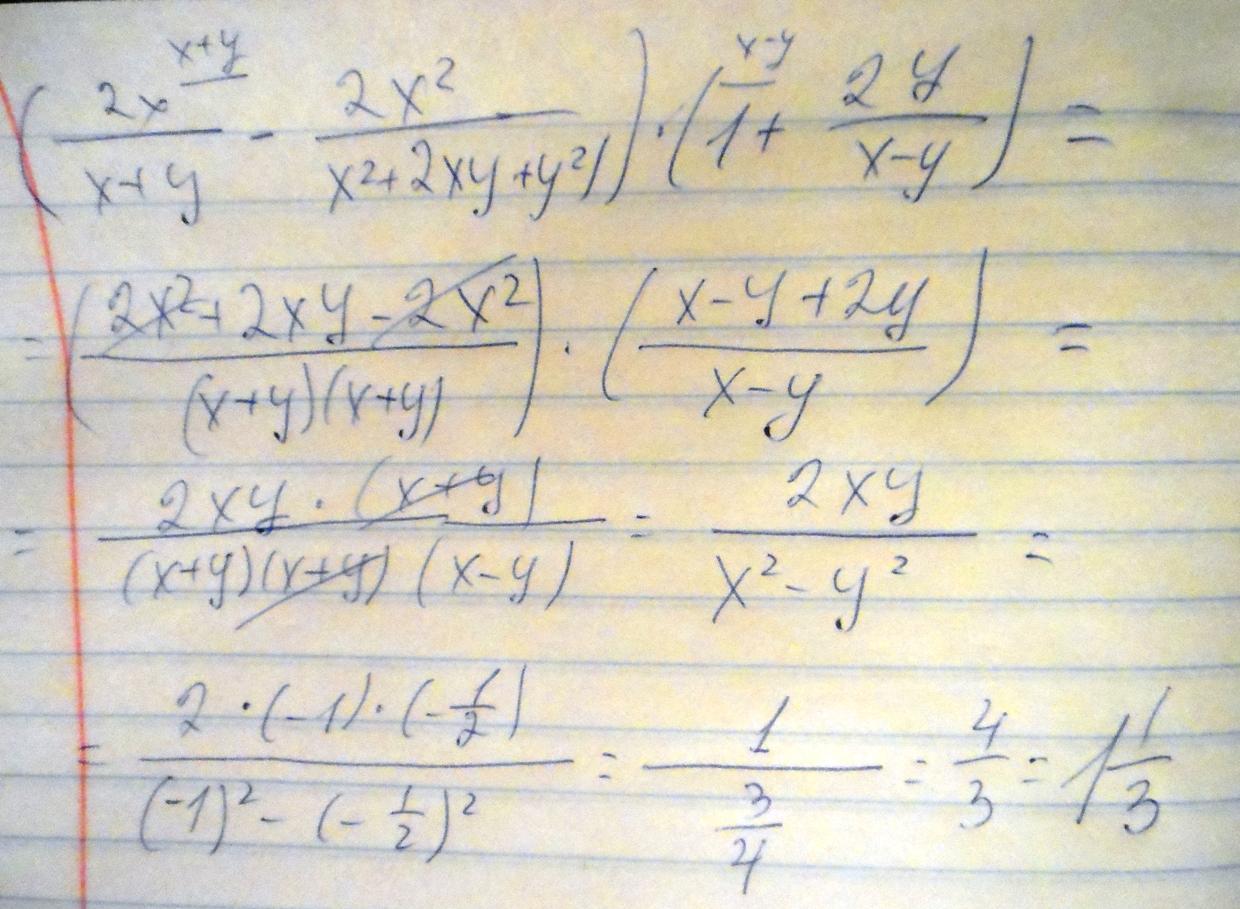 (2x^{x+y}/(x+y) - 2x²/(x²+2xy+y²)) · (1^{x-y} + 2y/(x-y)) =
= ((2x²+2xy-2x²)/((x+y)(x+y))) · ((x-y+2y)/(x-y)) =
= (2xy·(x+y))/((x+y)(x+y)(x-y)) = 2xy/(x²-y²) =
= (2·(-1)·(-1/2))/((-1)²-(-1/2)²) = 1/(3/4) = 4/3 = 1 1/3